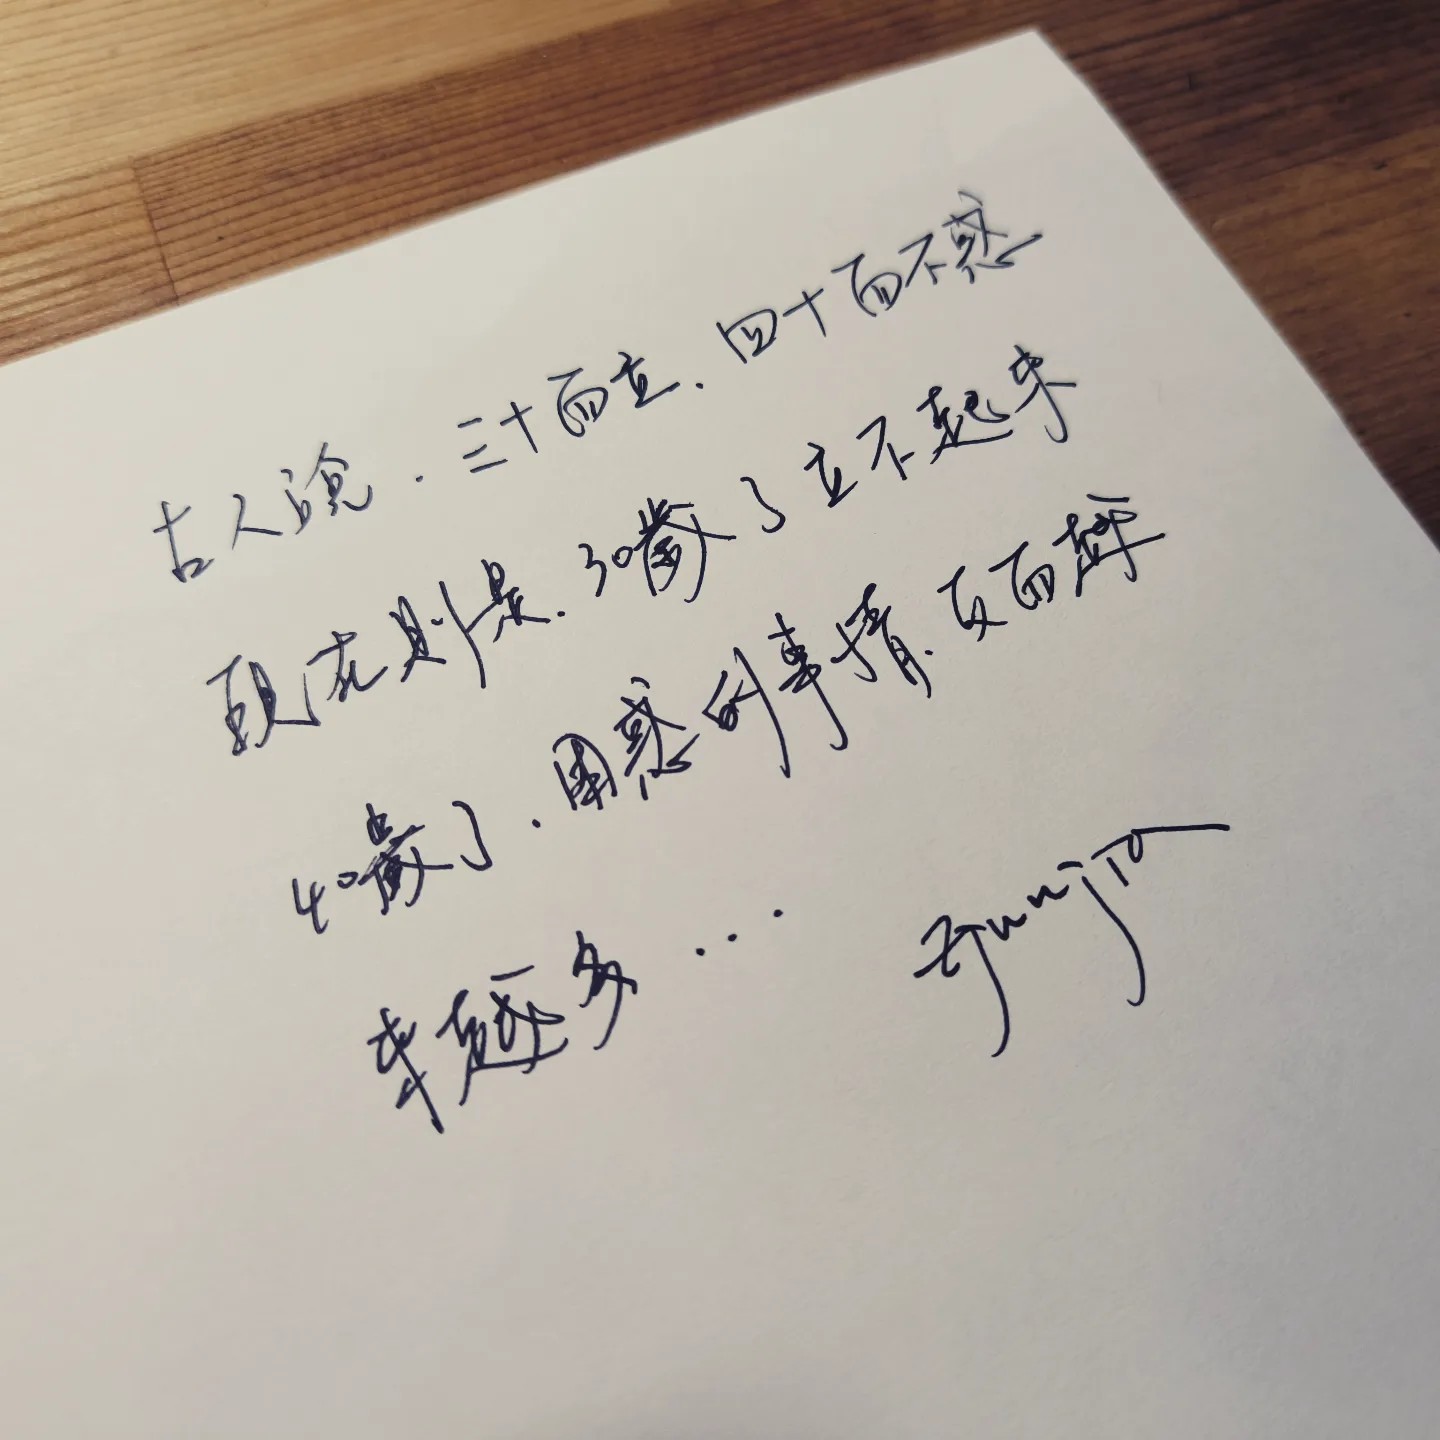 古人說．三十而立．四十而不惑
現在則是．30歲了立不起來
40歲了．困惑的事情．反而越
來越多...